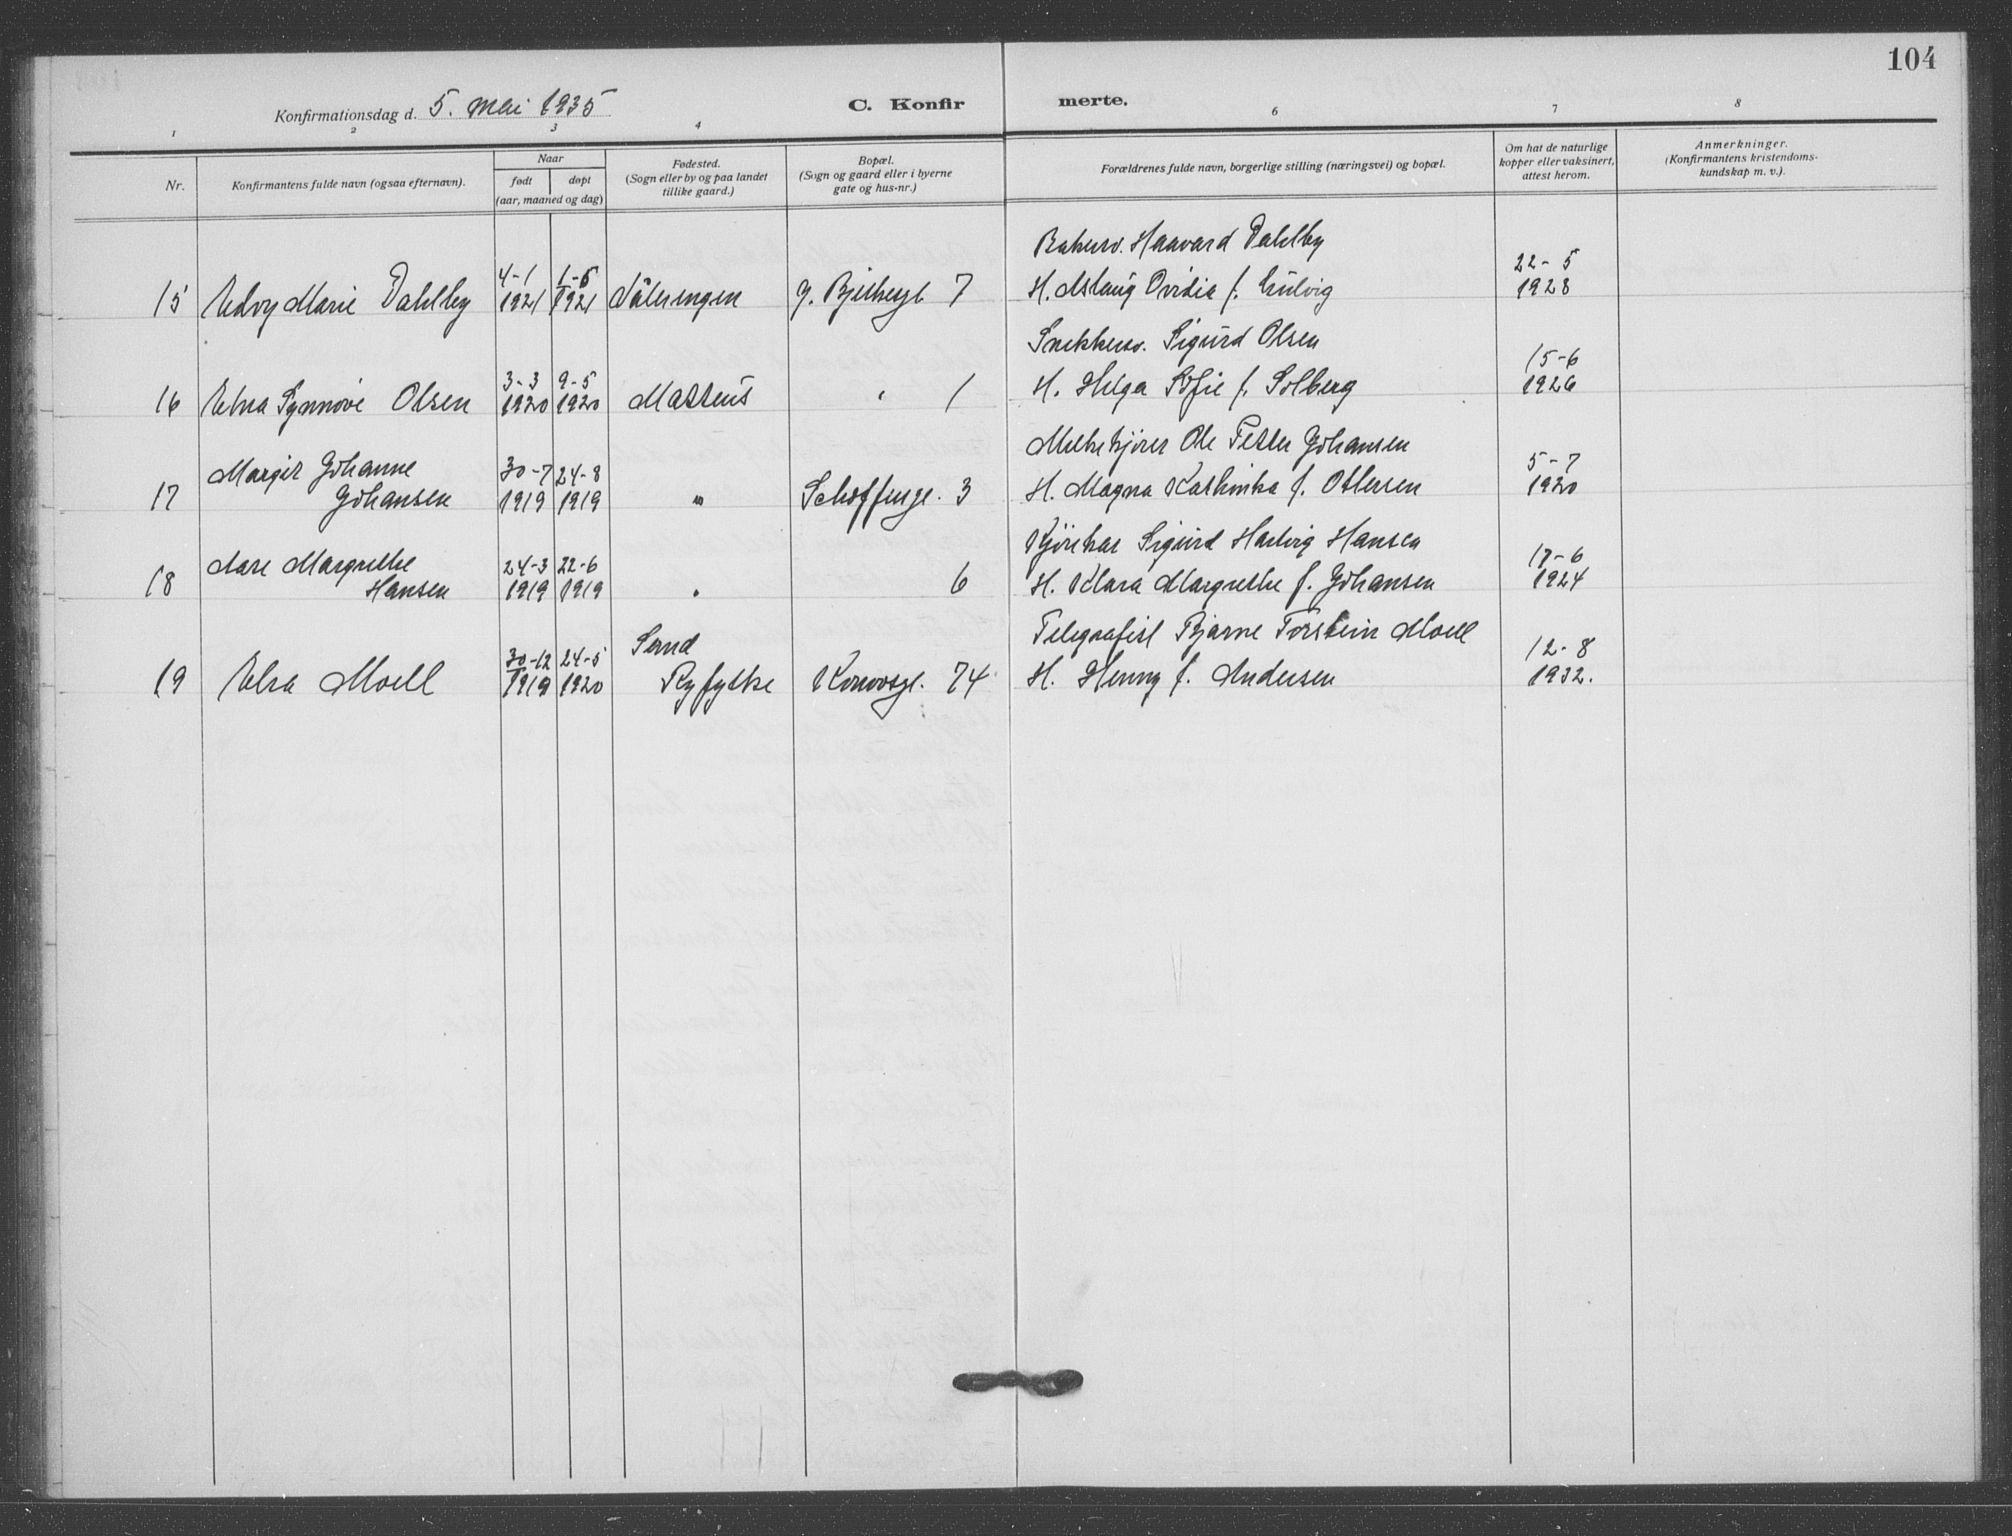 104
Konfirmationsdag d. 5. mai 1935
C. Konfir merte.
1 2 3 4 6 7 8
Nr.
Konfirmantens fulde navn (ogsaa efternavn).
Naar
født
døpt
(aar, maaned og dag)
Fødested.
(Sogn eller by og paa landet
tillike gaard.)
Bopæl.
(Sogn og gaard eller i byerne
gate og hus-nr.)
Forældrenes fulde navn, borgerlige stilling (næringsvei) og bopæl.
Om hat de naturlige
kopper eller vaksinert,
attest herom.
Anmerkninger.
(Konfirmantens kristendoms-
kundskap m. v.).
Bakersv. Haavard Dahlby
4-1 1-5 22-5
15 Marie Dahlby 1921 1921 Vålerengen 7 H. Aslaug Ovidia f. 1928
Snekkersv. Sigurd Olsen
3-3 9-5 15-6
16 Edna Synnøve Olsen 1920 1920 Matteus " 1 H. Helga Sofie f. Solberg 1926
Melkekjører Ole Petter Johansen
Margit Johanne 30-7 24-8 5-7
17 Johansen 1919 1919 " 3 H. Magna Kathinka f. Ottersen 1920
Sigurd Hartvig Hansen
Aase Margrethe 24-3 22-6 17-6
18 Hansen 1919 1919 " 6 H. Klara Margrethe f. Johansen 1924
Telegrafist Bjarne Torstein Moell
Sand 30-12 24-5 12-8
19 Elsa Moell 1919 1920 Ryfylke 74 H. Henny f. Andersen 1932.